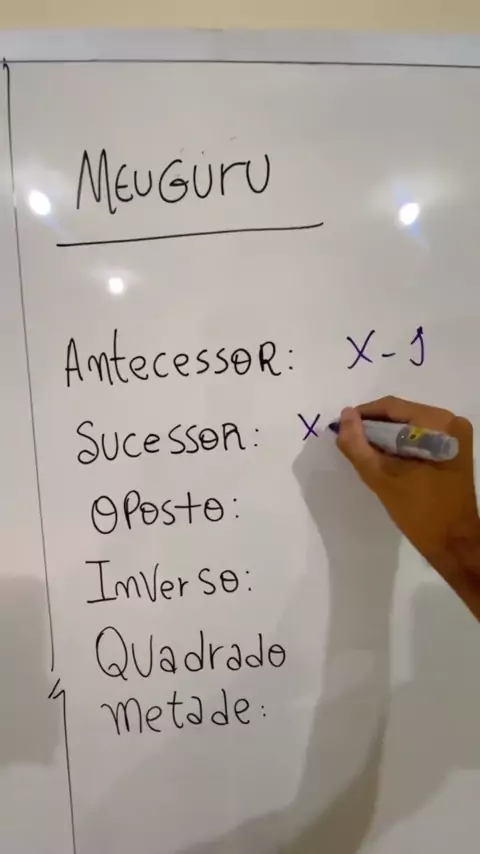 MEUGUrU
Antecessor: X-1
Sucessor: X
Oposto:
Inverso:
Quadrado
metade: